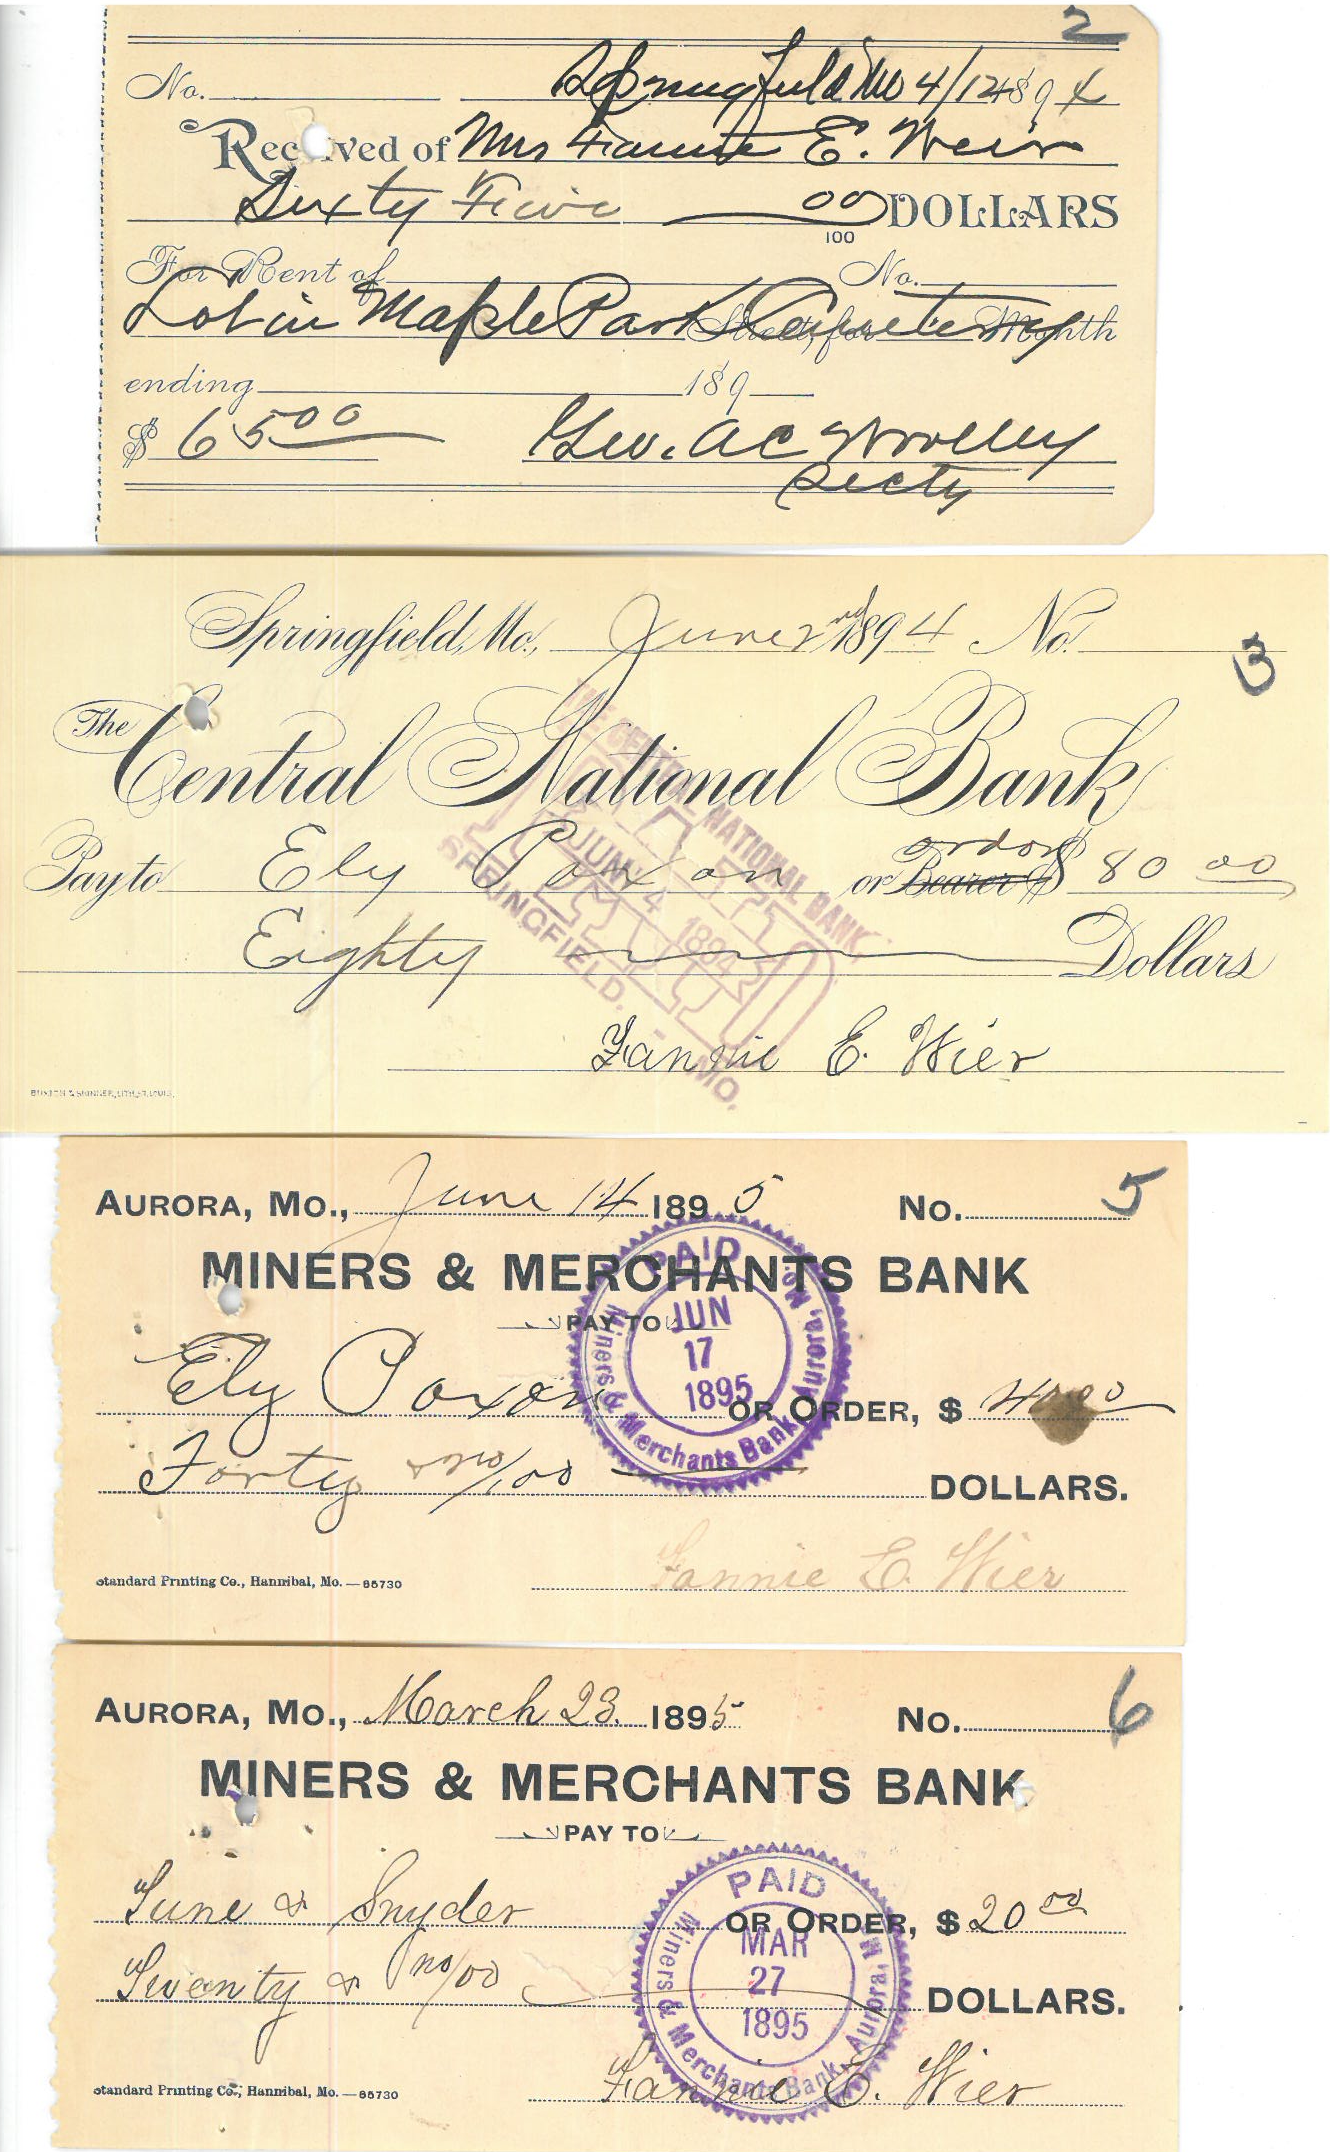 2
No. Springfield Mo 4/12 1894
Received of Mrs Fannie E. Weir
Sixty Five 00/100 DOLLARS
For Rent of No.
Lot in Maple Park Cemetery Street, for Month
ending 189
$ 65 00 Geo. A C Woolley
Secty
Springfield, Mo., June 2nd 1894 No.
3
The Central National Bank
order
Pay to Ely Paxon or Bearer $ 80 00
Eighty Dollars
THE CENTRAL NATIONAL BANK
PAID
JUN 4 1894
SPRINGFIELD, - MO.
Fannie E. Wier
BUXTON & SKINNER, LITH, ST. LOUIS.
AURORA, MO., June 14 1895 No. 5
MINERS & MERCHANTS BANK
PAY TO
Ely Paxon OR ORDER, $ 40.00
Forty & no/100 DOLLARS.
PAID
JUN
17
1895
Miners & Merchants Bank, Aurora, Mo.
Fannie E. Wier
Standard Printing Co., Hannibal, Mo.—86730
AURORA, MO., March 23. 1895 No. 6
MINERS & MERCHANTS BANK
PAY TO
Tune & Snyder OR ORDER, $ 20 00
Twenty & no/00 DOLLARS.
PAID
MAR
27
1895
Miners & Merchants Bank, Aurora, Mo.
Fannie E. Wier
Standard Printing Co., Hannibal, Mo.—86730